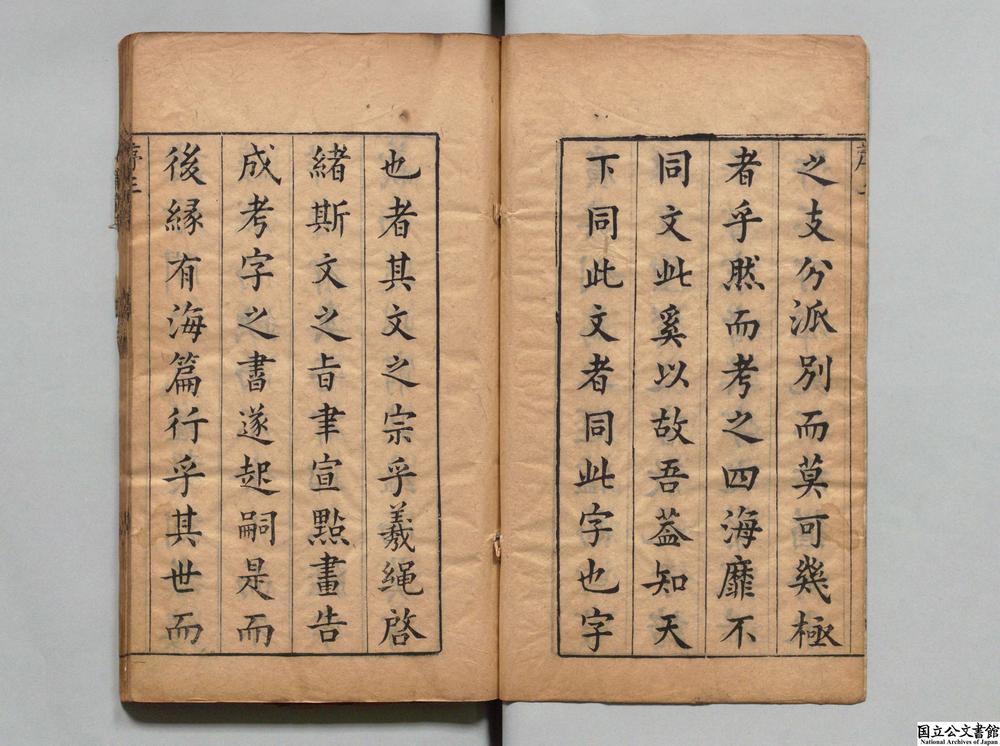 之支分派別而莫可幾極
者乎然而考之四海靡不
同文此奚以故吾葢知天
下同此文者同此字也字
也者其文之宗乎羲繩啓
緒斯文之旨聿宣點畫告
成考字之書遂起嗣是而
後縁有海篇行乎其世而
国立公文書館
National Archives of Japan